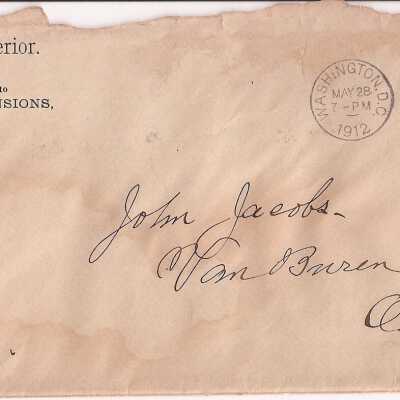 erior.
to
NSIONS,
WASHINGTON, D.C.
MAY 28
7-PM
1912
John Jacobs-
Van Buren